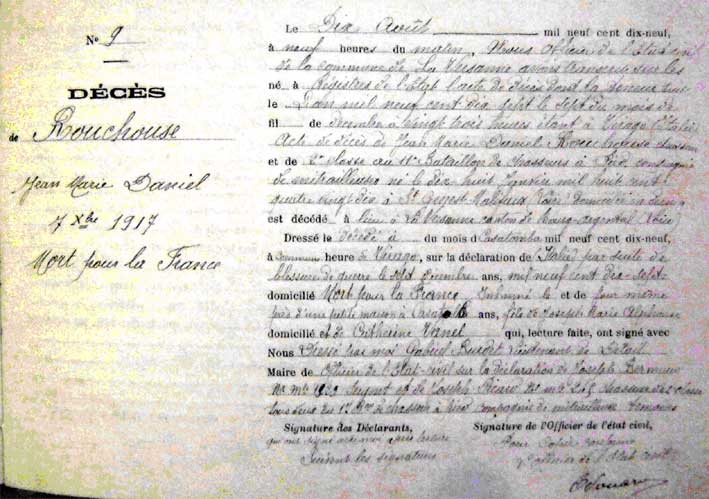 No 9
DÉCÈS
de Rouchouse
Jean Marie Daniel
7 Xbre 1917
Mort pour la France
Le Dix Août mil neuf cent dix-neuf,
à neuf heures du matin, Nous Officier de l'Etat civil
de la commune de La Versanne avons transcrit sur les
né à Registres de l'Etat l'acte de décès dont la teneur suit
le L'an mil neuf cent dix sept le sept du mois de
fil de décembre à vingt trois heures étant à
Acte de décès de Jean Marie Daniel Rouchouse chasseur
et de 2e classe au 11e Bataillon de chasseurs à pied compagnie
de mitrailleuses né le dix huit Janvier mil huit cent
quatre vingt dix à St Genest-Malifaux Loire domicilié en dernier
est décédé à lieu à La Versanne canton de Bourg-Argental (Loire)
Dressé le décédé à du mois mil neuf cent dix-neuf,
à commune heure de sur la déclaration de Italie par suite de
blessure de guerre le sept décembre ans, mil neuf cent dix-sept
domicilié Mort pour la France Inhumé le et de
près d'une petite maison à ans, fils de Joseph Marie
domicilié et de Catherine qui, lecture faite, ont signé avec
Nous Dressé par moi Gabriel Lieutenant de
Maire de Officier de l'Etat-civil sur la déclaration de Joseph
Sergent et de Joseph chasseur de 2e classe
tous deux du de chasseurs à pied compagnie de mitrailleuses témoins
Signature des Déclarants,
qui ont signé avec moi après lecture
Suivent les signatures
Signature de l'Officier de l'état civil,
Pour copie conforme
L'officier de l'Etat civil